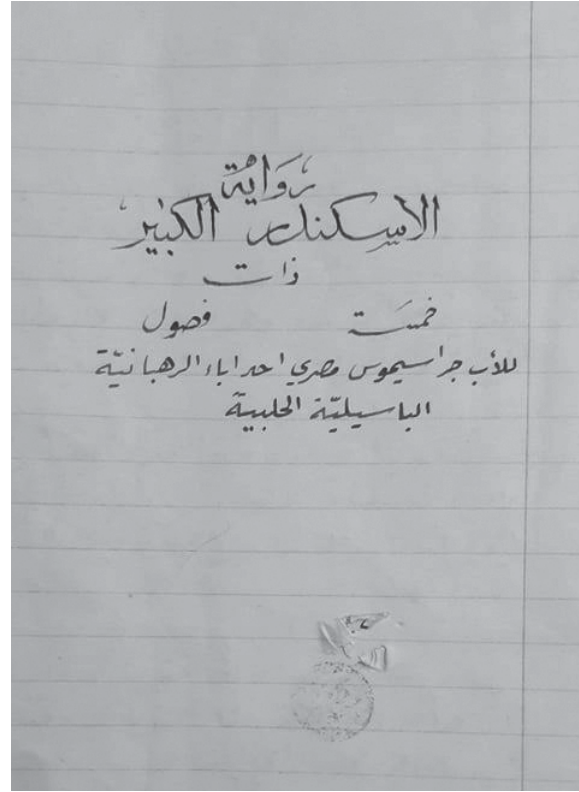 رواية
الاسكندر الكبير
ذات
خمسة فصول
للأب جراسيموس مصري احد اباء الرهبانيّة
الباسيليّة الحلبية